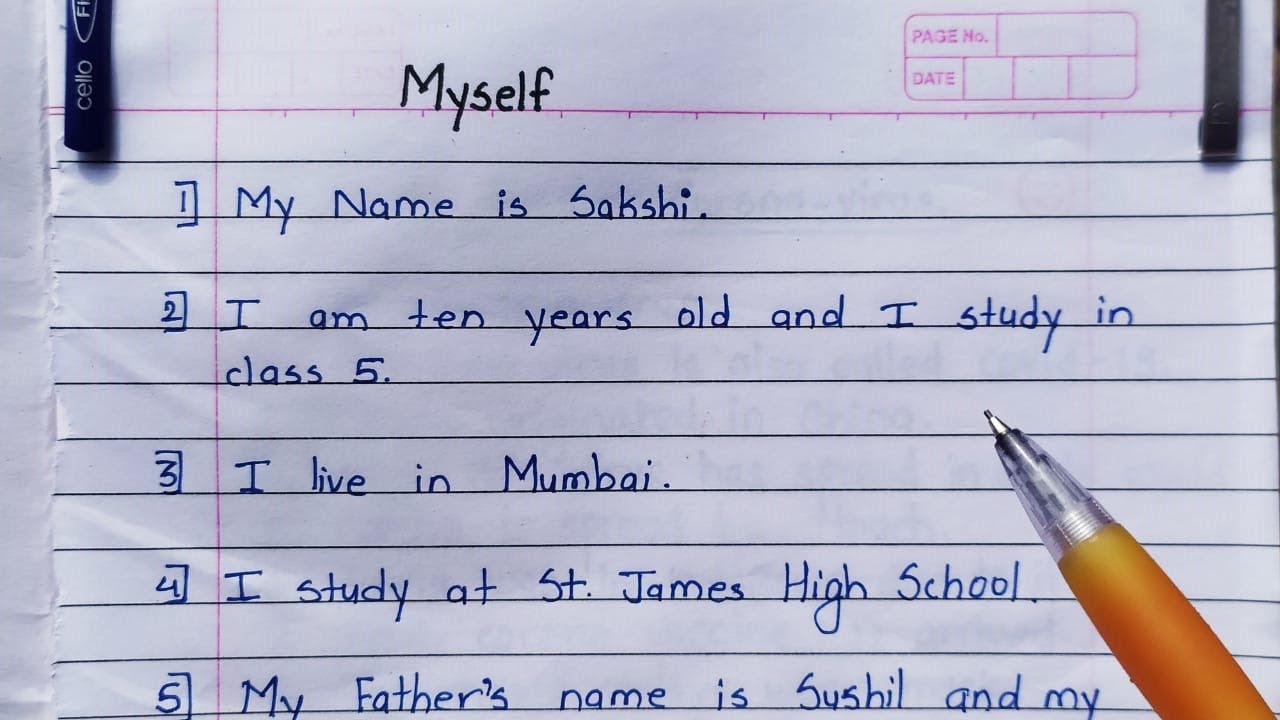 cello
PAGE No.
DATE
Myself
1] My Name is Sakshi.
2] I am ten years old and I study in
class 5.
3] I live in Mumbai.
4] I study at St. James High School.
5] My Father's name is Sushil and my